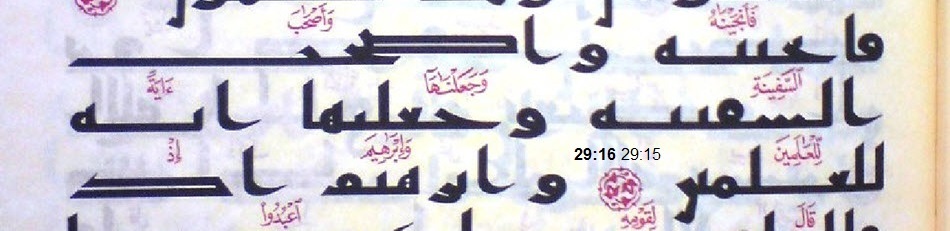 فَأَنجَيْنَٰهُ وَأَصْحَٰبَ
فانجينه واصحب
ٱلسَّفِينَةِ وَجَعَلْنَٰهَآ ءَايَةً
السفينه وجعلنها ايه
لِّلْعَٰلَمِينَ وَإِبْرَٰهِيمَ إِذْ
29:16 29:15
للعلمين وابرهيم اذ
قَالَ لِقَوْمِهِ ٱعْبُدُوا۟